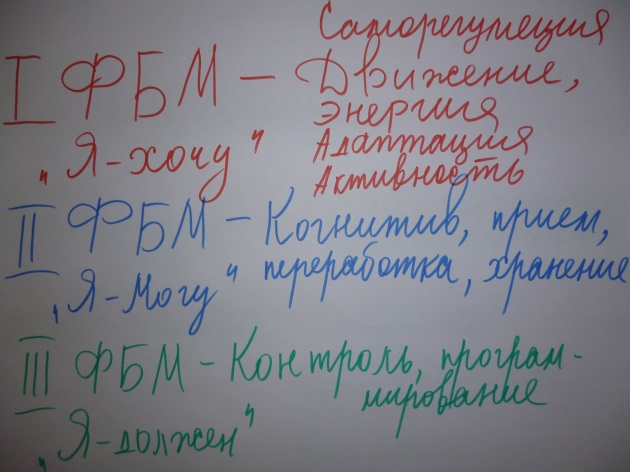 Саморегуляция
I ФБМ – Движение,
энергия
„Я-хочу" Адаптация
Активность
II ФБМ – Когнитив, прием,
„Я-могу" переработка, хранение
III ФБМ – Контроль, програм-
мирование
„Я-должен"